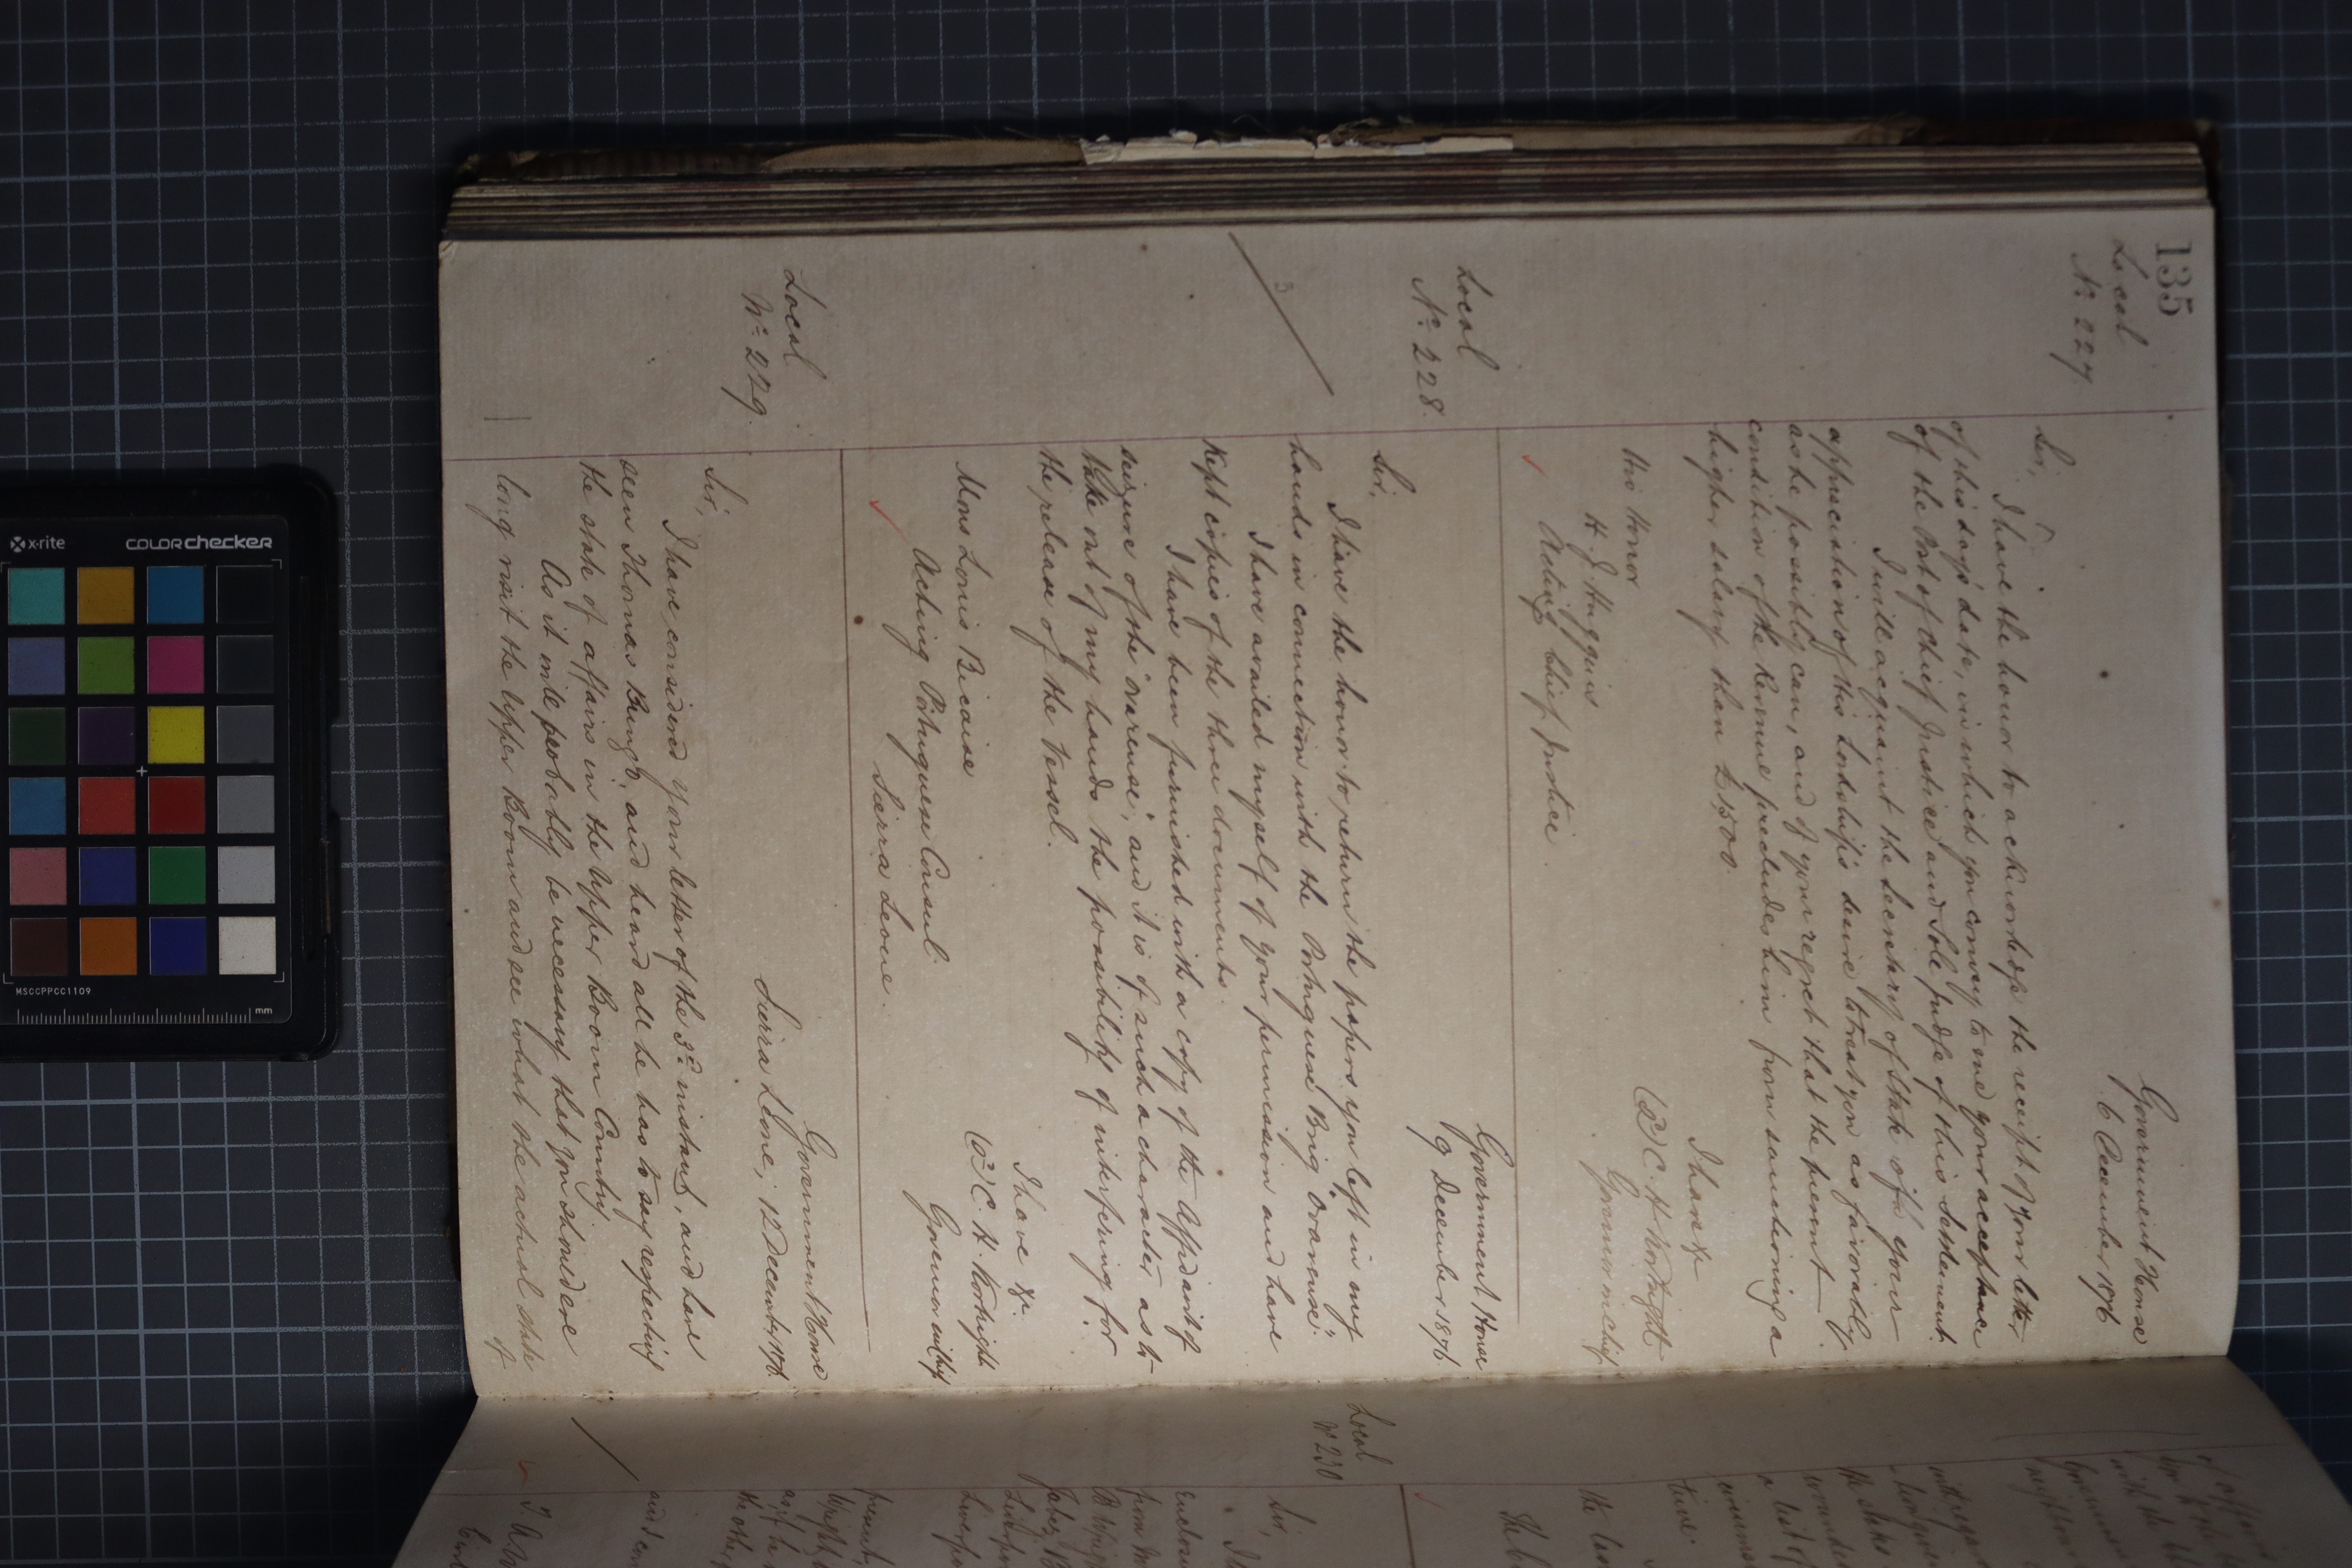 135
Local
No. 227
Government House
6 December 1876
Sir,
I have the honor to acknowledge the receipt of your letter
of this day's date, in which you convey to me your acceptance
of the Post of Chief Justice and Sole Judge of this Settlement.
I will acquaint the Secretary of State of your
appreciation of His Lordship's desire to treat you as favorably
as he possibly can, and of your regret that the present
condition of the Revenue precludes him from sanctioning a
higher salary than £1500.
I have &c
(Sd) C. H. Kortright
Governor in chief
His Honor
H. J. Huggins
Acting Chief Justice.
Local
No. 228.
Government House
9 December 1876.
Sir,
I have the honor to return the papers you left in my
hands in connection with the Portuguese Brig "Ovarense".
I have availed myself of your permission and have
kept copies of the three documents.
I have been furnished with a copy of the Affidavit of
seizure of the "Ovarense", and it is of such a character as to
take out of my hands the possibility of interfering for
the release of the Vessel.
I have &c.
(Sd) C. H. Kortright
Governor in Chief
Mons Louis Bicaise
Acting Portuguese Consul.
Sierra Leone.
Local
No. 229.
Government House
Sierra Leone, 12 December 1876.
Sir,
I have considered your letter of the 3d instant, and have
seen Thomas Bungo, and heard all he has to say respecting
the state of affairs in the Upper Boom Country
As it will probably be necessary that you should ere
long visit the Upper Boom and see what the actual state
of
Local
No 230
Sir,
x-rite
colorchecker
MSCCPPCC1109
mm